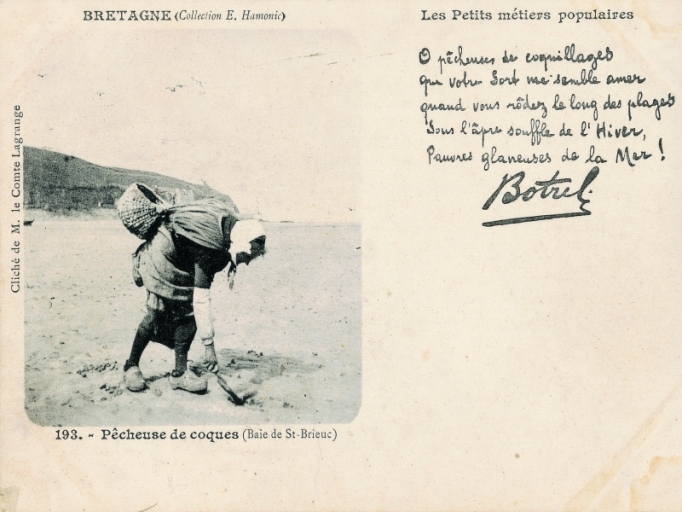 BRETAGNE (Collection E. Hamonic)
Les Petits métiers populaires
O pêcheuses de coquillages
que votre Sort me semble amer
quand vous rôdez le long des plages
Sous l'âpre souffle de l'Hiver,
Pauvres glaneuses de la Mer !
Botrel.
Cliché de M. le Comte Lagrange
193. - Pêcheuse de coques (Baie de St-Brieuc)